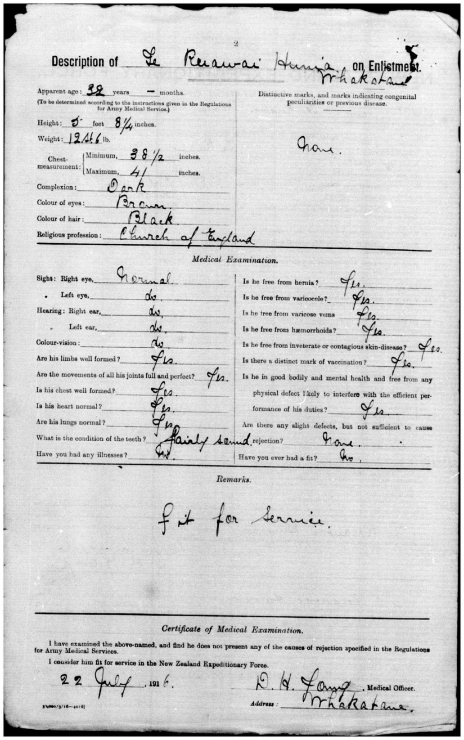 2
Description of Te Reiawai Hunia on Enlistment.
Whakatane
Apparent age: 32 years — months.
(To be determined according to the instructions given in the Regulations
for Army Medical Service.)
Height: 5 feet 8 1/4 inches.
Weight: 12 st 6 lb.
Chest-measurement: Minimum, 38 1/2 inches.
Maximum, 41 inches.
Complexion: Dark
Colour of eyes: Brown
Colour of hair: Black
Religious profession: Church of England
Distinctive marks, and marks indicating congenital
peculiarities or previous disease.
None.
Medical Examination.
Sight: Right eye, Normal
" Left eye, do
Hearing: Right ear, do.
" Left ear, do.
Colour-vision: do
Are his limbs well formed? Yes.
Are the movements of all his joints full and perfect? Yes.
Is his chest well formed? Yes.
Is his heart normal? Yes.
Are his lungs normal? Yes.
What is the condition of the teeth? Fairly sound
Have you had any illnesses? No.
Is he free from hernia? Yes.
Is he free from varicocele? Yes.
Is he free from varicose veins Yes.
Is he free from hæmorrhoids? Yes.
Is he free from inveterate or contagious skin-disease? Yes.
Is there a distinct mark of vaccination? Yes.
Is he in good bodily and mental health and free from any
physical defect likely to interfere with the efficient per-
formance of his duties? Yes.
Are there any slight defects, but not sufficient to cause
rejection? None.
Have you ever had a fit? No
Remarks.
fit for service.
Certificate of Medical Examination.
I have examined the above-named, and find he does not present any of the causes of rejection specified in the Regulations
for Army Medical Services.
I consider him fit for service in the New Zealand Expeditionary Force.
22 July, 1916.
D. H. Medical Officer.
Address: Whakatane.